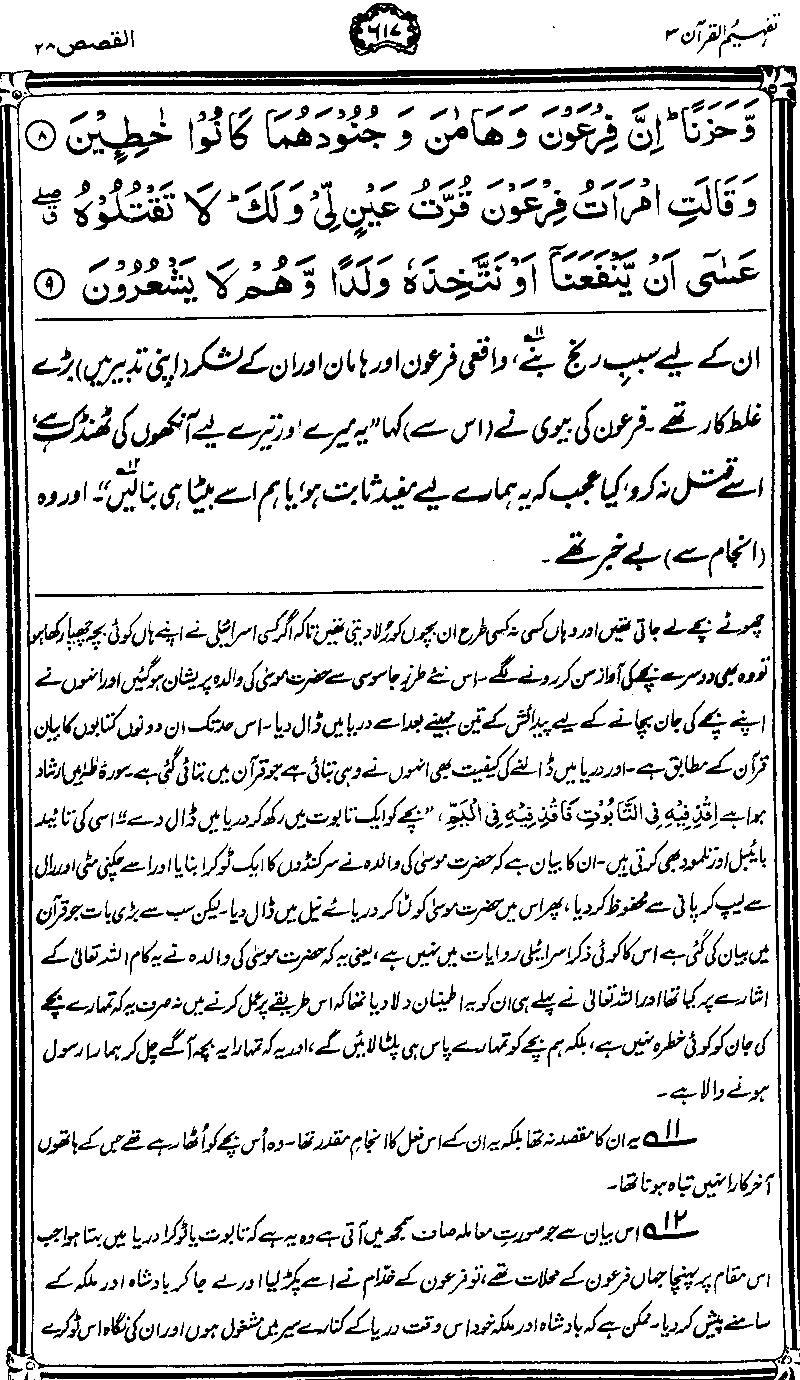 تفہیم القرآن ۳
۶۱۷
القصص ۲۸
وَّحَزَنًا ؕ اِنَّ فِرْعَوْنَ وَهَامٰنَ وَ جُنُوْدَهُمَا كَانُوْا خٰطِـِٕيْنَ ﴿۸﴾
وَقَالَتِ امْرَاَتُ فِرْعَوْنَ قُرَّتُ عَيْنٍ لِّيْ وَلَكَ ؕ لَا تَقْتُلُوْهُ ۖق
عَسٰٓى اَنْ يَّنْفَعَنَاۤ اَوْ نَتَّخِذَهٗ وَلَدًا وَّهُمْ لَا يَشْعُرُوْنَ ﴿۹﴾
ان کے لیے سببِ رنج بنے۱۱، واقعی فرعون اور ہامان اور ان کے لشکر (اپنی تدبیر میں) بڑے
غلط کار تھے۔ فرعون کی بیوی نے (اس سے) کہا ”یہ میرے اور تیرے لیے آنکھوں کی ٹھنڈک ہے،
اسے قتل نہ کرو، کیا عجب کہ یہ ہمارے لیے مفید ثابت ہو، یا ہم اسے بیٹا ہی بنا لیں۱۲“۔ اور وہ
(انجام سے) بے خبر تھے۔
چھوٹے بچے لے جاتی تھیں اور وہاں کسی نہ کسی طرح ان بچوں کو رُلا دیتی تھیں تاکہ اگر کسی اسرائیلی نے اپنے ہاں کوئی بچہ چھپا رکھا ہو
تو وہ بھی دوسرے بچے کی آواز سن کر رونے لگے۔ اس نئے طرز جاسوسی سے حضرت موسیٰ کی والدہ پریشان ہوگئیں اور انہوں نے
اپنے بچے کی جان بچانے کے لیے پیدائش کے تین مہینے بعد اسے دریا میں ڈال دیا۔ اس حد تک ان دونوں کتابوں کا بیان
قرآن کے مطابق ہے۔ اور دریا میں ڈالنے کی کیفیت بھی انہوں نے وہی بتائی ہے جو قرآن میں بتائی گئی ہے۔ سورۂ طٰہٰ میں ارشاد
ہوا ہے اِقْذِفِيْهِ فِی التَّابُوْتِ فَاقْذِفِيْهِ فِی الْيَمِّ، ”بچے کو ایک تابوت میں رکھ کر دریا میں ڈال دے“ اسی کی تائید
بائیبل اور تلمود بھی کرتی ہیں۔ ان کا بیان ہے کہ حضرت موسیٰ کی والدہ نے سرکنڈوں کا ایک ٹوکرا بنایا اور اسے چکنی مٹی اور رال
سے لیپ کر پانی سے محفوظ کر دیا، پھر اس میں حضرت موسیٰ کو لٹا کر دریائے نیل میں ڈال دیا۔ لیکن سب سے بڑی بات جو قرآن
میں بیان کی گئی ہے اس کا کوئی ذکر اسرائیلی روایات میں نہیں ہے، یعنی یہ کہ حضرت موسیٰ کی والدہ نے یہ کام اللہ تعالیٰ کے
اشارے پر کیا تھا اور اللہ تعالیٰ نے پہلے ہی ان کو یہ اطمینان دلا دیا تھا کہ اس طریقے پر عمل کرنے میں نہ صرف یہ کہ تمہارے بچے
کی جان کو کوئی خطرہ نہیں ہے، بلکہ ہم بچے کو تمہارے پاس ہی پلٹا لائیں گے، اور یہ کہ تمہارا یہ بچہ آگے چل کر ہمارا رسول
ہونے والا ہے۔
۱۱ یہ ان کا مقصد نہ تھا بلکہ یہ ان کے اس فعل کا انجامِ مقدر تھا۔ وہ اُس بچے کو اُٹھا رہے تھے جس کے ہاتھوں
آخر کار انہیں تباہ ہونا تھا۔
۱۲ اس بیان سے جو صورتِ معاملہ صاف سمجھ میں آتی ہے وہ یہ ہے کہ تابوت یا ٹوکرا دریا میں بہتا ہوا جب
اس مقام پر پہنچا جہاں فرعون کے محلات تھے، تو فرعون کے خدّام نے اسے پکڑ لیا اور لے جا کر بادشاہ اور ملکہ کے
سامنے پیش کر دیا۔ ممکن ہے کہ بادشاہ اور ملکہ خود اس وقت دریا کے کنارے سیر میں مشغول ہوں اور ان کی نگاہ اس ٹوکرے